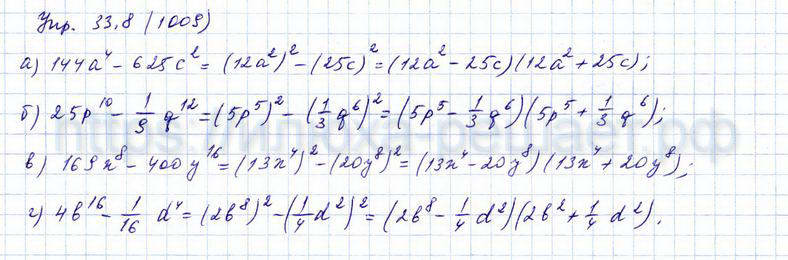 Упр. 33.8 (1009)
а) 144a⁴ - 625c² = (12a²)² - (25c)² = (12a² - 25c)(12a² + 25c);
б) 25p¹⁰ - 1/9 q¹² = (5p⁵)² - (1/3 q⁶)² = (5p⁵ - 1/3 q⁶)(5p⁵ + 1/3 q⁶);
в) 169x⁸ - 400y¹⁶ = (13x⁴)² - (20y⁸)² = (13x⁴ - 20y⁸)(13x⁴ + 20y⁸);
г) 4b¹⁶ - 1/16 d⁴ = (2b⁸)² - (1/4 d²)² = (2b⁸ - 1/4 d²)(2b² + 1/4 d²).